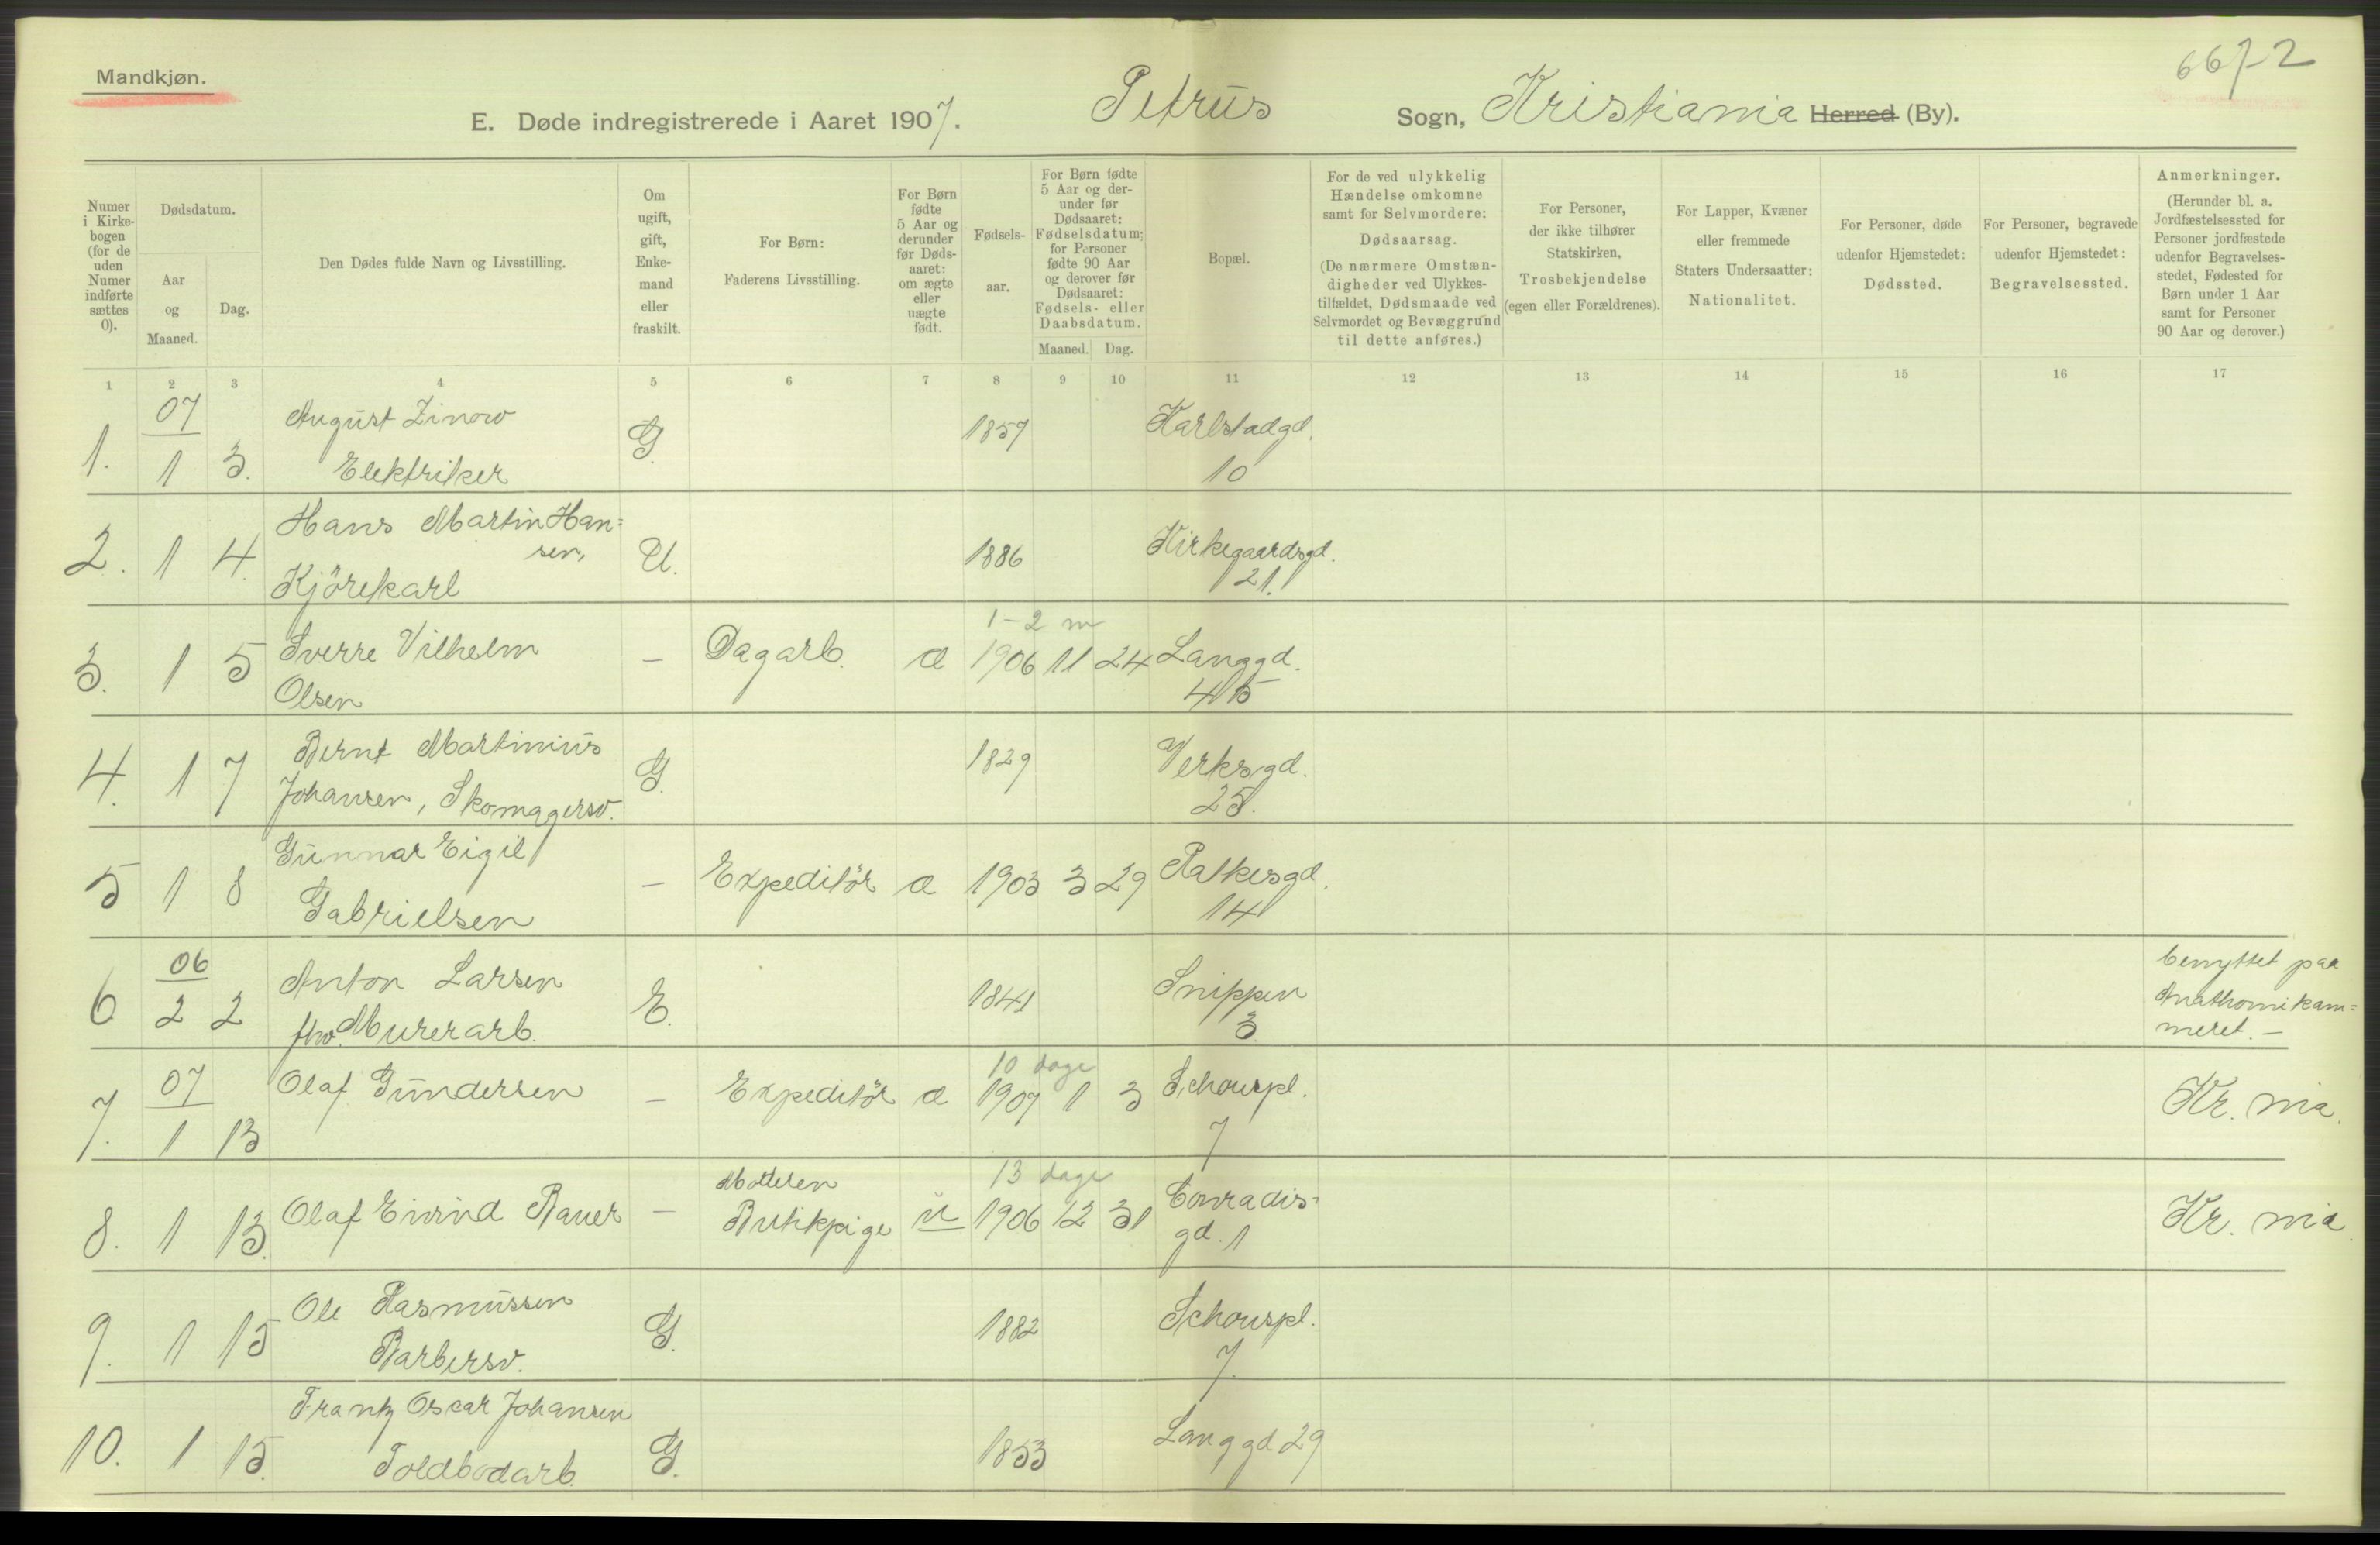 Mandkjøn.
667-2
E. Døde indregistrerede i Aaret 1907. Petrus Sogn, Kristiania Herred (By).
Numer i Kirkebogen (for de uden Numer indførte sættes 0).
Dødsdatum.
Aar og Maaned.
Dag.
Den Dødes fulde Navn og Livsstilling.
Om ugift, gift, Enkemand eller fraskilt.
For Børn: Faderens Livsstilling.
For Børn fødte 5 Aar og derunder før Dødsaaret: om ægte eller uægte født.
Fødselsaar.
For Børn fødte 5 Aar og derunder før Dødsaaret: Fødselsdatum; for Personer fødte 90 Aar og derover før Dødsaaret: Fødsels- eller Daabsdatum.
Maaned. Dag.
Bopæl.
For de ved ulykkelig Hændelse omkomne samt for Selvmordere: Dødsaarsag. (De nærmere Omstændigheder ved Ulykkestilfældet, Dødsmaade ved Selvmordet og Bevæggrund til dette anføres.)
For Personer, der ikke tilhører Statskirken, Trosbekjendelse (egen eller Forældrenes).
For Lapper, Kvæner eller fremmede Staters Undersaatter: Nationalitet.
For Personer, døde udenfor Hjemstedet: Dødssted.
For Personer, begravede udenfor Hjemstedet: Begravelsessted.
Anmerkninger. (Herunder bl. a. Jordfæstelsessted for Personer jordfæstede udenfor Begravelsesstedet, Fødested for Børn under 1 Aar samt for Personer 90 Aar og derover.)
1 2 3 4 5 6 7 8 9 10 11 12 13 14 15 16 17
07
1. 1 3. August Zinow G. 1857 Karlstadgd.
Elektriker 10
2. 1 4. Hans Martin Han= U. 1886 Kirkegaardsgd.
sen,
Kjörekarl 21.
1-2 m
3. 1 5 Sverre Vilhelm - Dagarb. æ 1906 11 24 Langgd.
Olsen 45
4. 1 7 Bernt Martinius G. 1829 Verksgd.
Johansen, Skomagersv. 25.
5 1 8 Gunnar Eigil - Expeditör æ 1903 3 29 Ratkesgd.
Gabrielsen 14
06
6 2 2 Anton Larsen E. 1841 Snippen benyttet paa
fhv. Murerarb. 3 Anathomikam=
meret. -
07 10 dage
7. 1 13 Olaf Gundersen - Expeditör æ 1907 1 3 Schouspl. Kr. nia.
7
Moderen 13 dage
8. 1 13. Olaf Eivind Bauer - Butikpige u 1906 12 31 Conradis= Kr. nia.
gd. 1
9. 1 15 Ole Rasmussen G. 1882 Schouspl.
Barbersv. 7.
10. 1 15. Frantz Oscar Johansen G. 1853 Langgd 29
Toldbodarb.